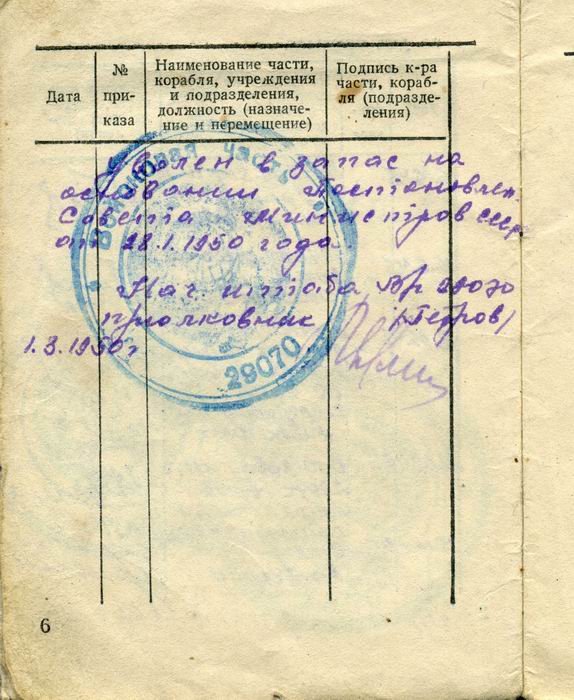 Дата
№
при-
каза
Наименование части,
корабля, учреждения
и подразделения,
должность (назначе-
ние и перемещение)
Подпись к-ра
части, кораб-
ля (подразде-
ления)
Уволен в запас на
основании Постановлен.
Совета Министров СССР
от 28.1.1950 года.
Нач. штаба 29070
подполковник (Петров)
1.3.1950г
Войсковая часть
29070
6